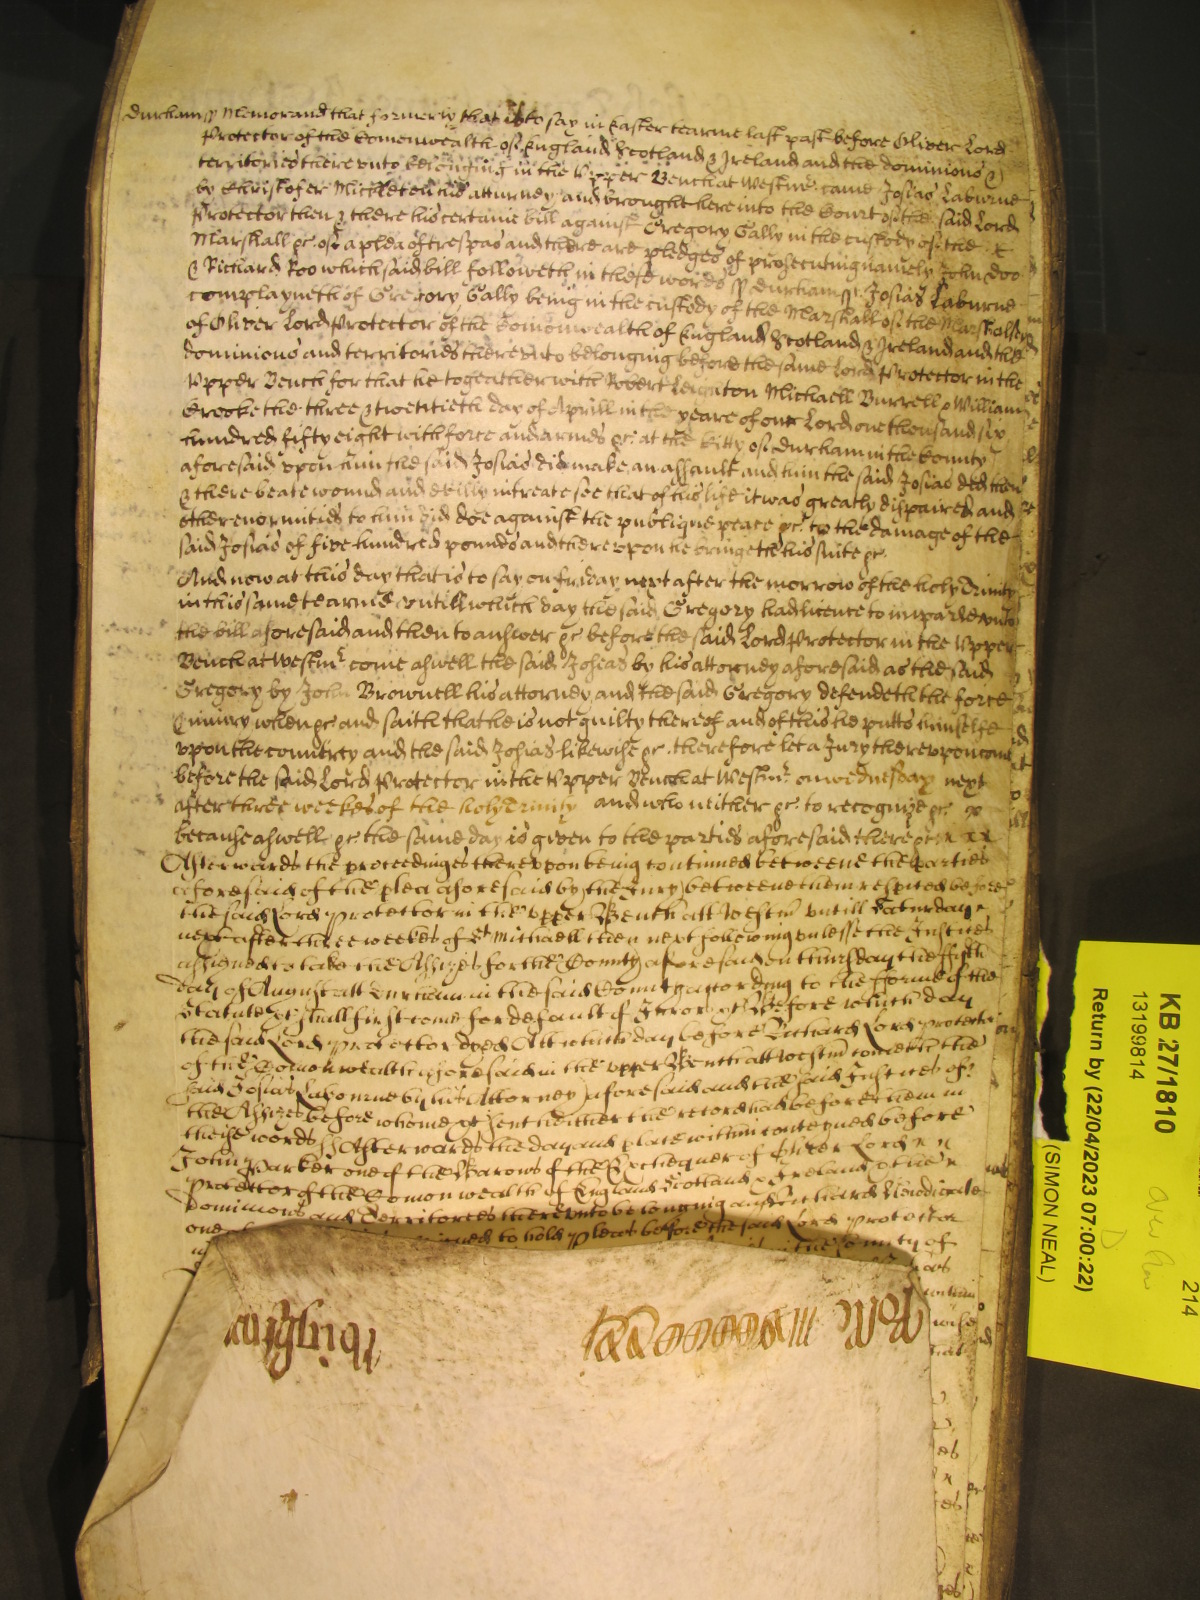 Durham ss Memorand that formerly that is to say in Easter tearme last past before Oliver Lord
Protector of the Comonwealth of England Scotland & Ireland and the dominions &
territories there unto belonging in the Upper Bench at Westmr. came Josias Laburne
by Christofer Mickleton his atturney and brought here into the Court of the said Lord
Protector then & there his certaine bill against Gregory Gally in the custody of the x
Marshall &c. of a plea of trespas and there are pledges of prosecuting namely John Doo
& Richard Roo which said bill followeth in these words ss Durham ss Josias Laburne
complayneth of Gregory Gally being in the custody of the Marshall of the Marshalsey
of Oliver Lord Protector of the Comonwealth of England Scotland & Ireland and the
dominions and territories thereunto belonging before the same Lord Protector in the
Upper Bench for that he togeather with Robert Leighton Michaell Burrell & William
Crooke the three & twentieth day of Aprill in the yeare of our Lord one thousand six
hundred fifty eight with force and armes &c. at the Citty of Durham in the County
aforesaid upon him the said Josias did make an assault and him the said Josias did then
& there beate wound and evilly intreate see that of his life it was greatly dispaired and
other enormities to him did doe against the publique peace &c. to the damage of the
said Josias of five hundred pounds and thereupon he bringeth his suite &c.
And now at this day that is to say on Friday next after the morrow of the holy Trinity
in this same tearme untill which day the said Gregory had licence to imparle unto
the bill aforesaid and then to answer &c. before the said Lord Protector in the Upper
Bench at Westmr. come aswell the said Josias by his attorney aforesaid as the said
Gregory by John Brownell his attorney and the said Gregory defendeth the force
& iniury when &c. and saith that he is not guilty thereof and of this he putts himselfe
upon the countrey and the said Josias likewise &c. therefore let a Jury thereupon come
before the said Lord Protector in the Upper Bench at Westmr. on wednesday next
after three weekes of the holy Trinity and who neither &c. to recognize &c. x
because aswell &c. the same day is given to the parties aforesaid there &c. x x x
Afterwards the proceedinges thereupon being continued betweene the parties
aforesaid of the plea aforesaid by the Jury betweene them respited before
the said Lord Protector in the Upper Bench att Westmr untill Saturday
next after three weekes of St Michaell then next following unlesse the Justices
assigned to take the Assizes for the County aforesaid on thursday the fifth
day of August att Durham in the said County according to the forme of the
Statute &c. shall first come for default of Jurors &c. Before which day
the said Lord Protector dyed Att which day before Richard Lord protector
of the Comonwealth aforesaid in the upper Bench att Westmr cometh the
said Josias Labourne by his Attorney aforesaid and the said Justices of
the Assizes before whome &c. sent hither the record had before them in
these words ss Afterwards the day and place within conteyned before
John Parker one of the Barons of the Exchequer of Oliver Lord x x
Protector of the Comon wealth of England Scotland & Ireland & the x
Dominions and Territories thereunto belonging and Richard Newdigate
one
to hold Pleas before the said Lord Protector
the County of
thirtythre
Roll
KB 27/1810
13199814
Return by (22/04/2023 07:00:22)
(SIMON NEAL)
214